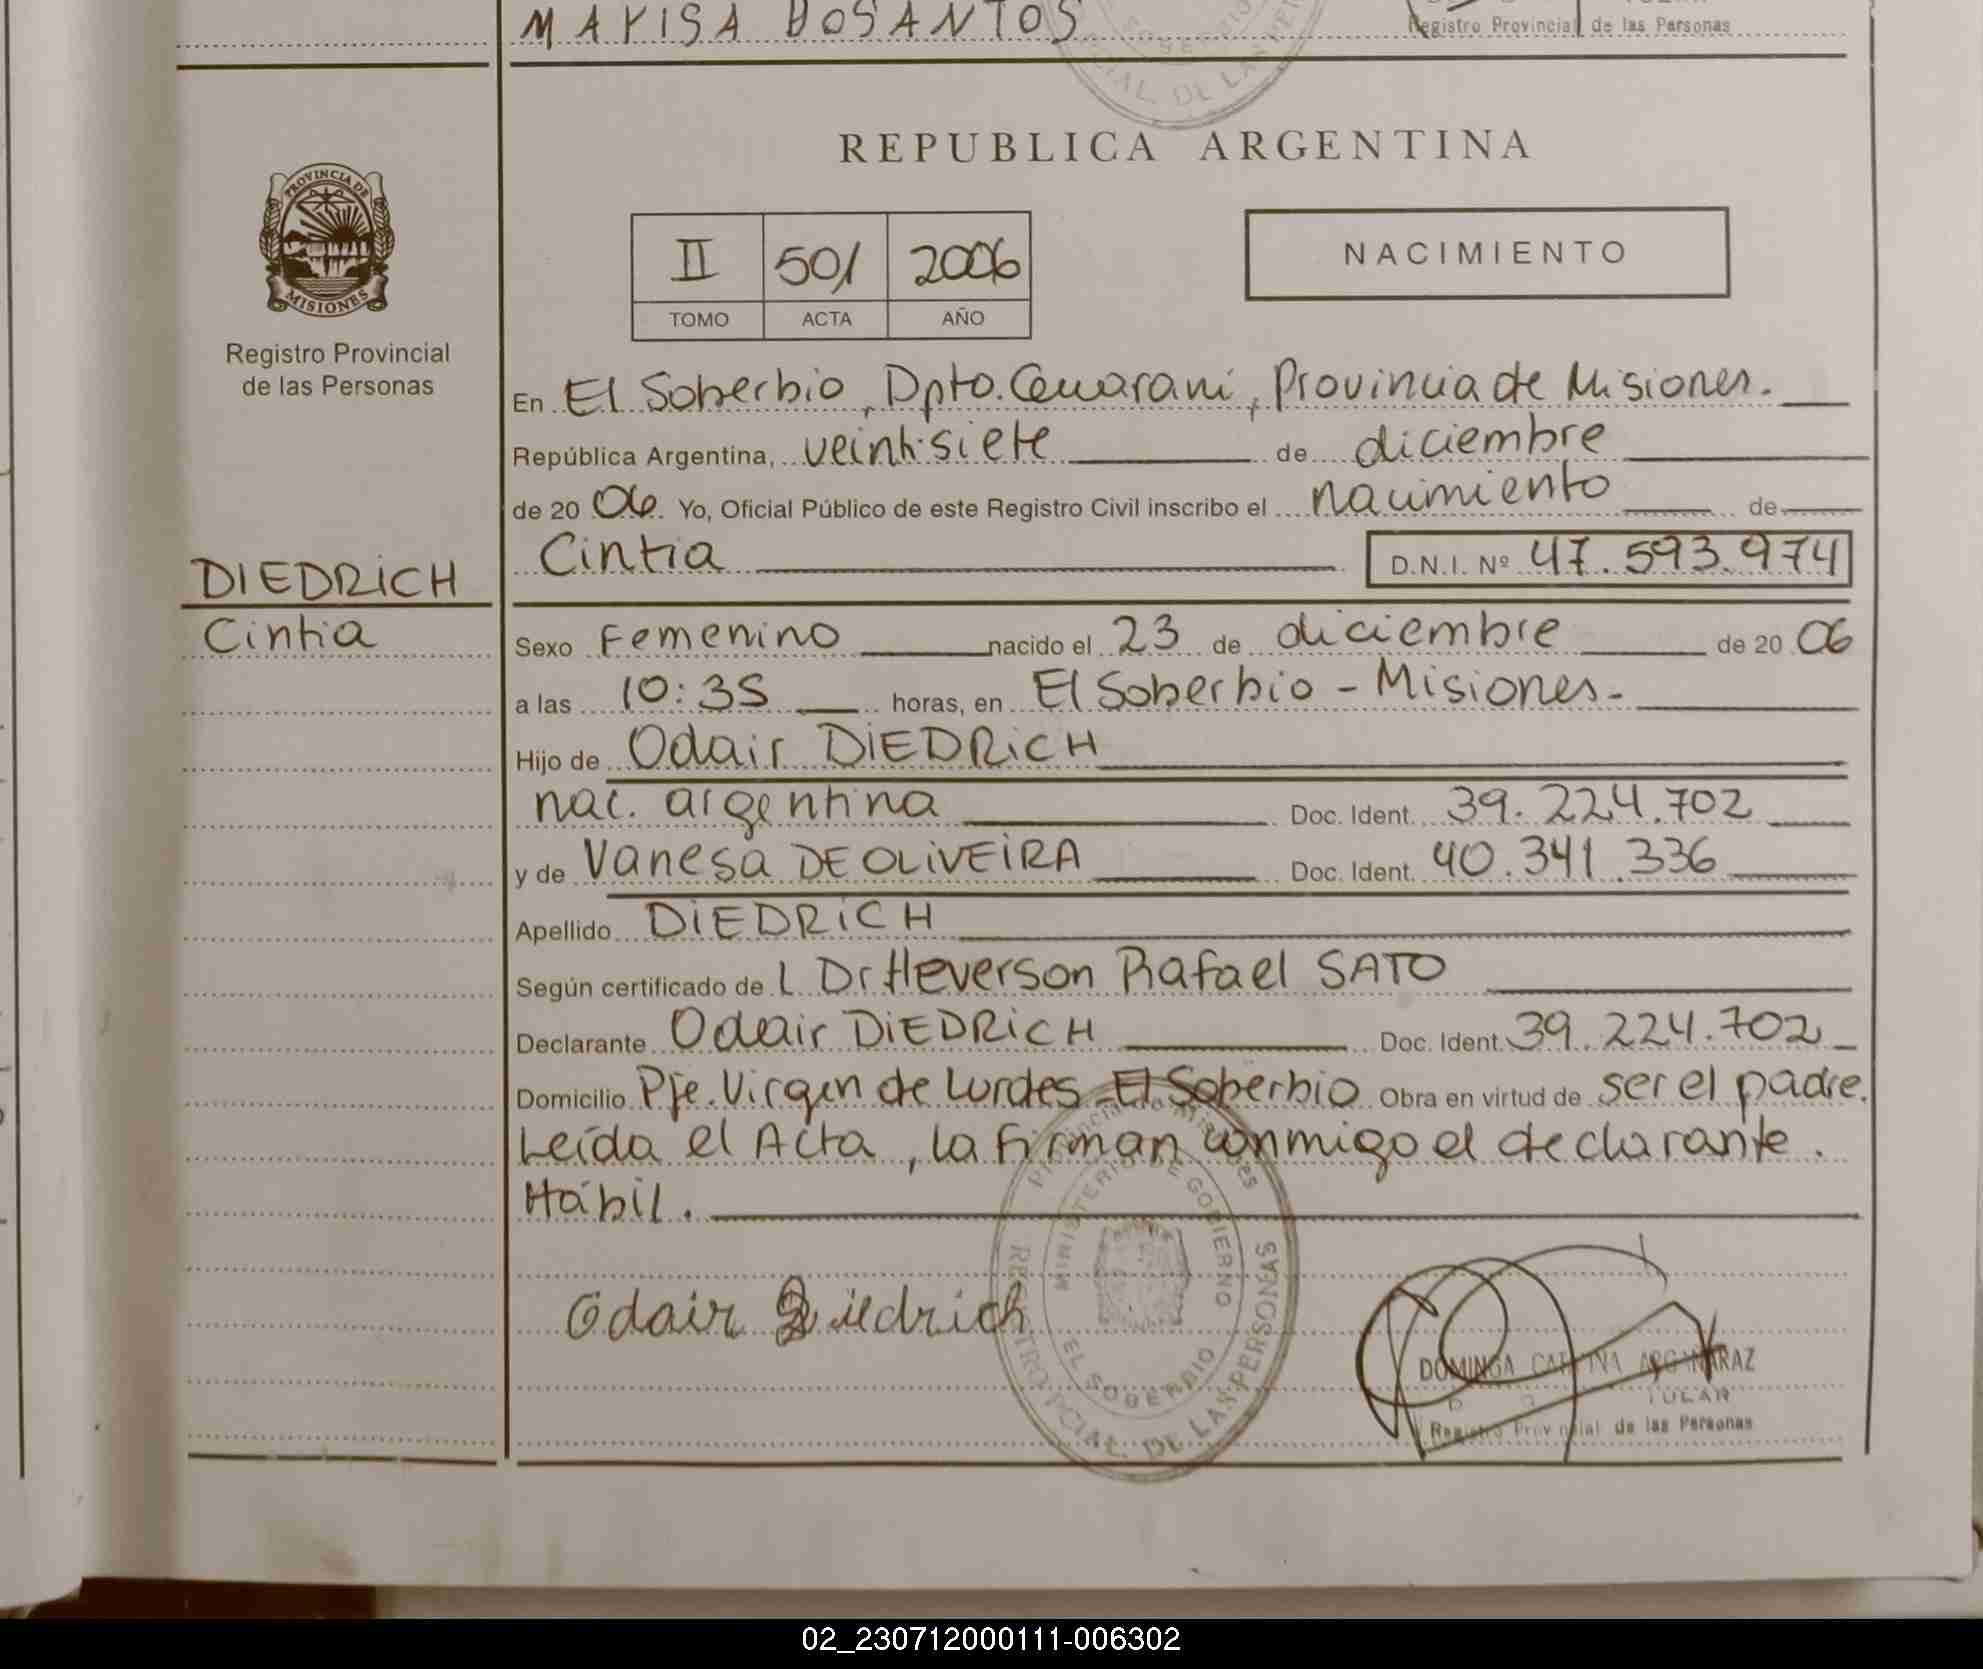 MARISA DOSANTOS
Registro Provincial de las Personas
PROVINCIA DE
MISIONES
Registro Provincial
de las Personas
REPUBLICA ARGENTINA
II 501 2006
TOMO ACTA AÑO
NACIMIENTO
En El Soberbio, Dpto. Guarani, Provincia de Misiones.
República Argentina, veintisiete de diciembre
de 20 06 Yo, Oficial Público de este Registro Civil inscribo el nacimiento de
Cintia D.N.I. Nº 47.593.974
DIEDRICH
Cintia
Sexo Femenino nacido el 23 de diciembre de 20 06
a las 10:35 horas, en El Soberbio - Misiones-
Hijo de Odair DIEDRICH
nac. argentina Doc. Ident. 39.224.702
y de Vanesa DE OLIVEIRA Doc. Ident. 40.341.336
Apellido DIEDRICH
Según certificado de L Dr Heverson Rafael SATO
Declarante Odair DIEDRICH Doc. Ident. 39.224.702
Domicilio Pje. Virgen de Lurdes - El Soberbio Obra en virtud de ser el padre.
Leída el Acta, la firman conmigo el declarante.
Hábil.
Odair Diedrich
Provincia de Misiones
MINISTERIO DE GOBIERNO
EL SOBERBIO
REGISTRO PROVINCIAL DE LAS PERSONAS
DOMINGA CATALINA ARGAÑARAZ
TITULAR
Registro Provincial de las Personas
02_230712000111-006302